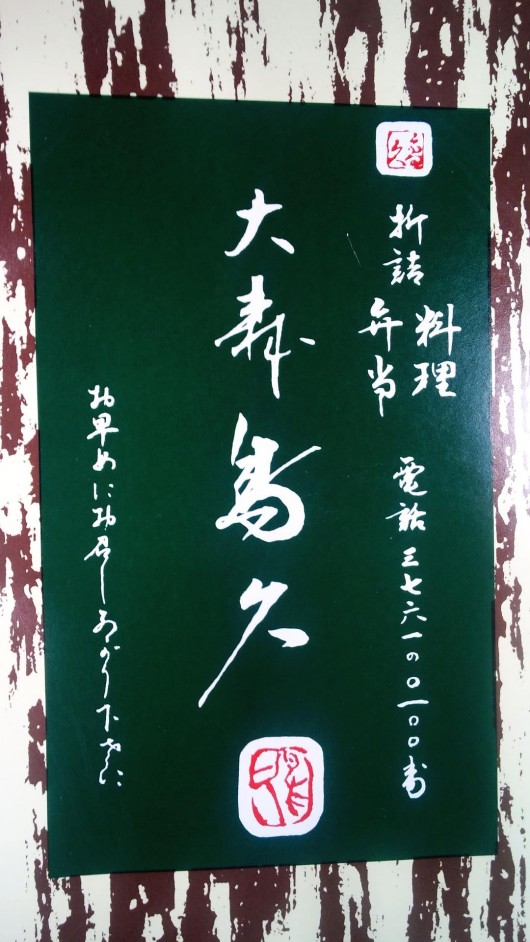 折詰
料理
弁当
電話三七六一の〇一〇〇番
大寿鳥久
お早めにお召しあがり下さい